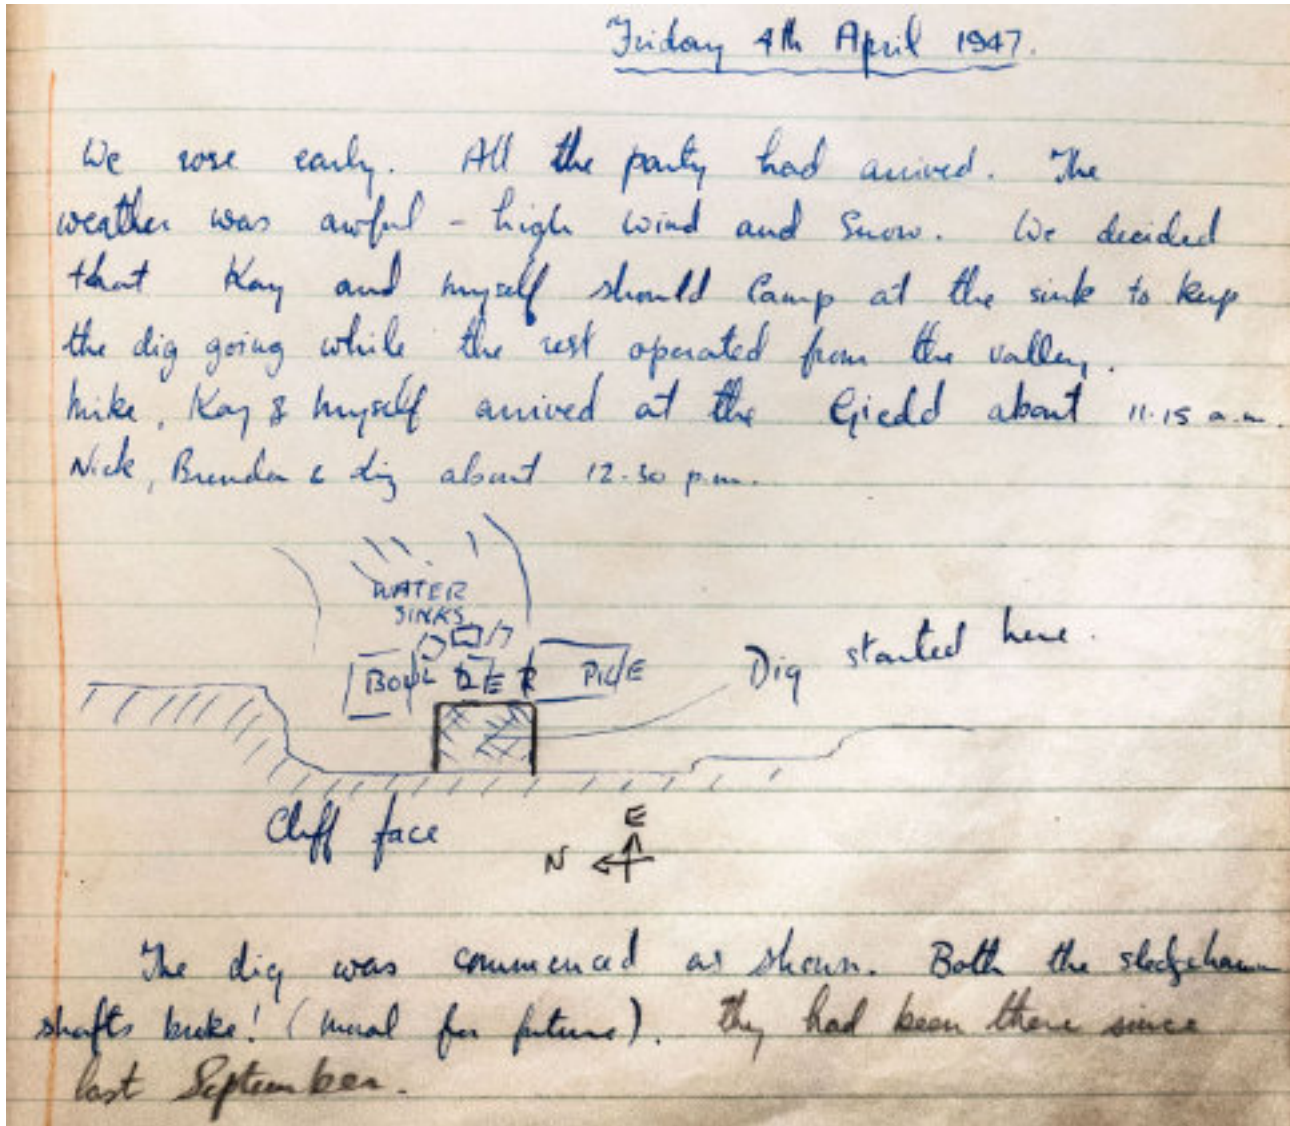 Friday 4th April 1947.
We rose early. All the party had arrived. The
weather was awful - high wind and snow. We decided
that Kay and myself should camp at the sink to keep
the dig going while the rest operated from the valley.
Mike, Kay & myself arrived at the Giedd about 11.15 a.m.
Nick, Brendan & dig about 12.30 p.m.
WATER
SINKS
BOULDER PILE
Dig started here.
Cliff face
E
N
The dig was commenced as shown. Both the sledgehamm
shafts broke! (moral for future). They had been there since
last September.